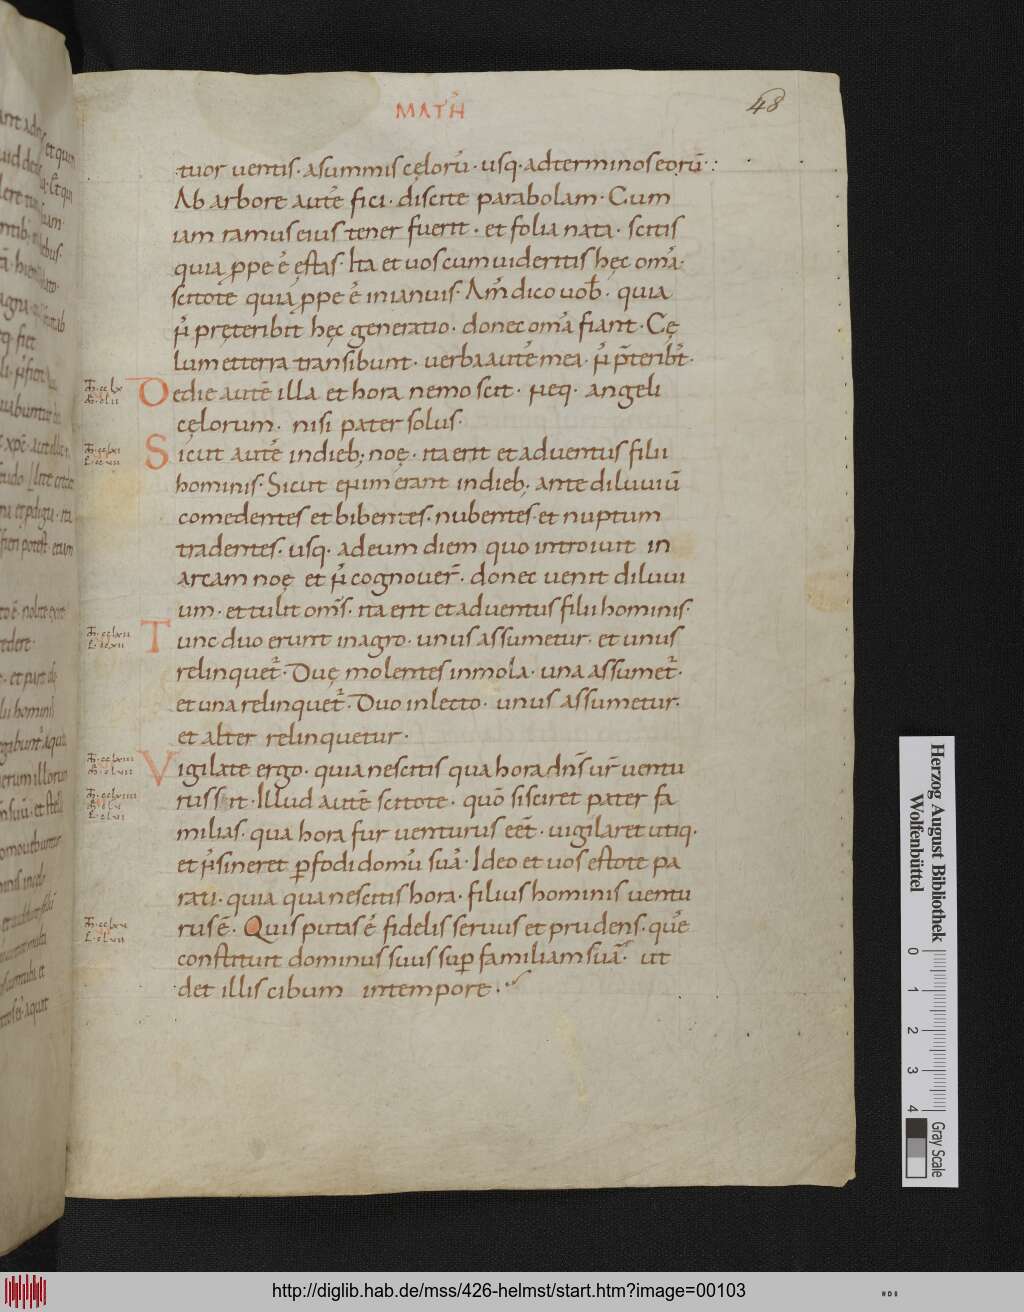 MATH
48
tuor ventis· asummis cęlorū· usq· adterminos eorū·:
Ab arbore autē fici· discite parabolam· Cum
iam ramus eius tener fuerit· et folia nata· scitis
quia ꝓpe ē ęstas· Ita et uos cum uideritis hęc om̄a·
scitote quia ꝓpe ē inianuis· Am̄ dico uob̄· quia
n̄ pręteribit hęc generatio· donec om̄a fiant· Cę
lum etterra transibunt· uerba autē mea· n̄ p̄teribt̄·
Dedie autē illa et hora nemo scit· neq· angeli
cęlorum· nisi pater solus·
Sicut autē indieb; noę· ita erit et aduentus filii
hominis· Sicut enim erant indieb; ante diluuiū
comedentes et bibentes· nubentes· et nuptum
tradentes· usq· adeum diem quo introiuit in
arcam noę et n̄ cognouer̄· donec uenit diluui
um· et tulit om̄s· ita erit et aduentus filii hominis·
Tunc duo erunt inagro· unus assumetur· et unus
relinquet̄· Duę molentes inmola· una assumet̄·
et una relinquet̄· Duo inlecto· unus assumetur·
et alter relinquetur·
Vigilate ergo· quia nescitis qua hora dn̄s ur̄ uentu
rus sit· Illud autē scitote· quō si sciret pater fa
milias· qua hora fur uenturus eēt· uigilaret utiq·
et n̄ sineret ꝑfodi domū suā· Ideo et uos estote pa
rati· quia qua nescitis hora· filius hominis uentu
rus ē· Quis putas ē fidelis seruus et prudens· quē
constituit dominus suus suꝑ familiam suā· ut
det illis cibum intempore·
Herzog August Bibliothek
Wolfenbüttel
0 1 2 3 4
Gray Scale
http://diglib.hab.de/mss/426-helmst/start.htm?image=00103